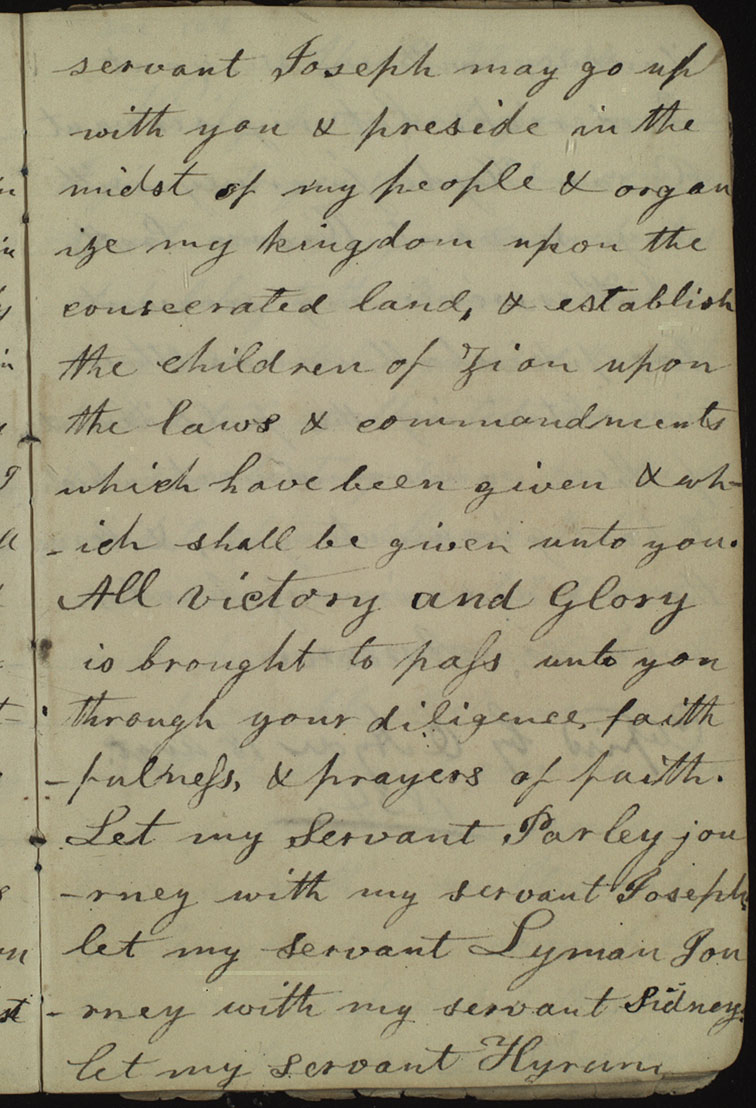 servant Joseph may go up
with you & preside in the
midst of my people & organ
ize my kingdom upon the
consecrated land, & establish
the children of Zion upon
the laws & commandments
which have been given & wh-
-ich shall be given unto you.
All victory and Glory
is brought to pass unto you
through your diligence, faith
-fulness, & prayers of faith.
Let my Servant Parley jou
-rney with my servant Joseph,
let my servant Lyman Jou
-rney with my servant Sidney.
let my servant Hyrum,